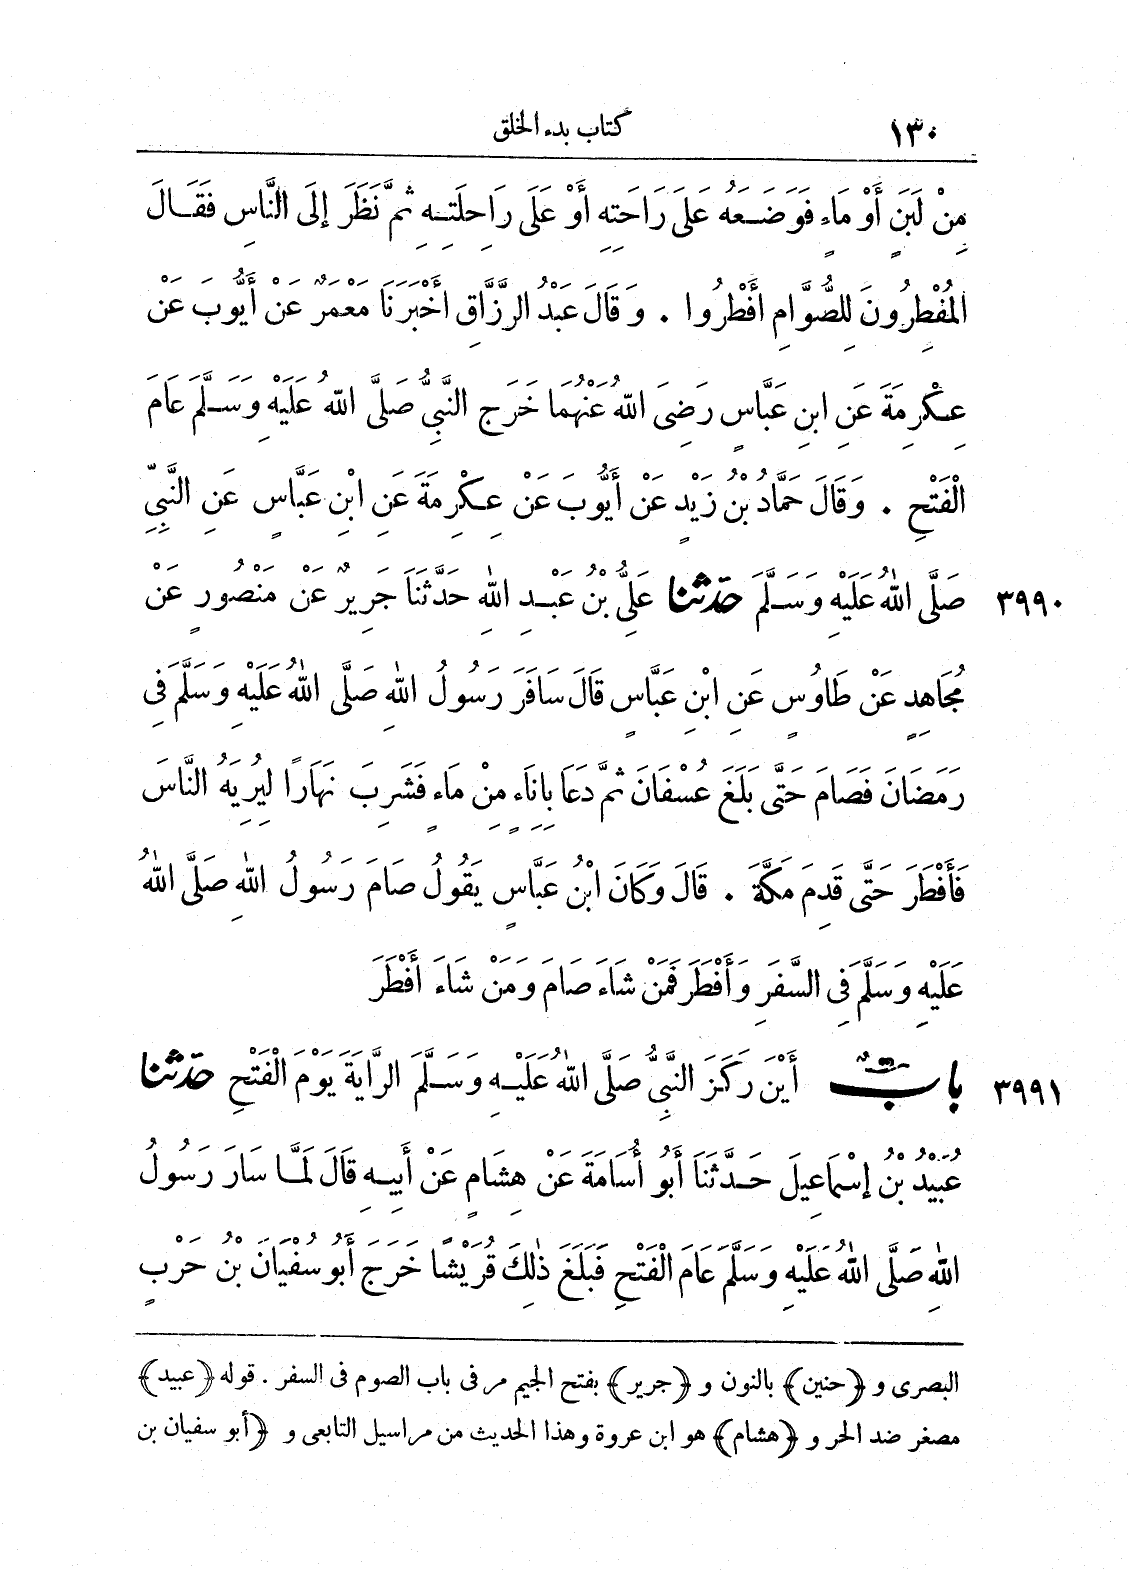 ١٣٠ كتاب بدء الخلق
مِنْ لَبَنٍ أَوْ مَاءٍ فَوَضَعَهُ عَلَى رَاحَتِهِ أَوْ عَلَى رَاحِلَتِهِ ثُمَّ نَظَرَ إِلَى النَّاسِ فَقَالَ
الْمُفْطِرُونَ لِلصُّوَّامِ أَفْطِرُوا . وَقَالَ عَبْدُ الرَّزَّاقِ أَخْبَرَنَا مَعْمَرٌ عَنْ أَيُّوبَ عَنْ
عِكْرِمَةَ عَنِ ابنِ عَبَّاسٍ رَضِىَ اللهُ عَنْهُمَا خَرَجَ النَّبِىُّ صَلَّى اللهُ عَلَيْهِ وَسَلَّمَ عَامَ
الْفَتْحِ . وَقَالَ حَمَّادُ بْنُ زَيْدٍ عَنْ أَيُّوبَ عَنْ عِكْرِمَةَ عَنِ ابْنِ عَبَّاسٍ عَنِ النَّبِىِّ
٣٩٩٠ صَلَّى اللهُ عَلَيْهِ وَسَلَّمَ حدّثنا عَلِىُّ بْنُ عَبْدِ اللهِ حَدَّثَنَا جَرِيرٌ عَنْ مَنْصُورٍ عَنْ
مُجَاهِدٍ عَنْ طَاوُسٍ عَنِ ابْنِ عَبَّاسٍ قَالَ سَافَرَ رَسُولُ اللهِ صَلَّى اللهُ عَلَيْهِ وَسَلَّمَ فِى
رَمَضَانَ فَصَامَ حَتَّى بَلَغَ عُسْفَانَ ثُمَّ دَعَا بِإِنَاءٍ مِنْ مَاءٍ فَشَرِبَ نَهَارًا لِيُرِيَهُ النَّاسَ
فَأَفْطَرَ حَتَّى قَدِمَ مَكَّةَ . قَالَ وَكَانَ ابْنُ عَبَّاسٍ يَقُولُ صَامَ رَسُولُ اللهِ صَلَّى اللهُ
عَلَيْهِ وَسَلَّمَ فِى السَّفَرِ وَأَفْطَرَ فَمَنْ شَاءَ صَامَ وَمَنْ شَاءَ أَفْطَرَ
٣٩٩١ بابٌ أَيْنَ رَكَزَ النَّبِىُّ صَلَّى اللهُ عَلَيْهِ وَسَلَّمَ الرَّايَةَ يَوْمَ الْفَتْحِ حدّثنا
عُبَيْدُ بْنُ إِسْمَاعِيلَ حَدَّثَنَا أَبُو أُسَامَةَ عَنْ هِشَامٍ عَنْ أَبِيهِ قَالَ لَمَّا سَارَ رَسُولُ
اللهِ صَلَّى اللهُ عَلَيْهِ وَسَلَّمَ عَامَ الْفَتْحِ فَبَلَغَ ذٰلِكَ قُرَيْشًا خَرَجَ أَبُو سُفْيَانَ بْنُ حَرْبٍ
البصرى و ﴿حنين﴾ بالنون و ﴿جرير﴾ بفتح الجيم مر فى باب الصوم فى السفر . قوله ﴿عبيد﴾
مصغر ضد الحر و ﴿هشام﴾ هو ابن عروة وهذا الحديث من مراسيل التابعى و ﴿أبو سفيان بن